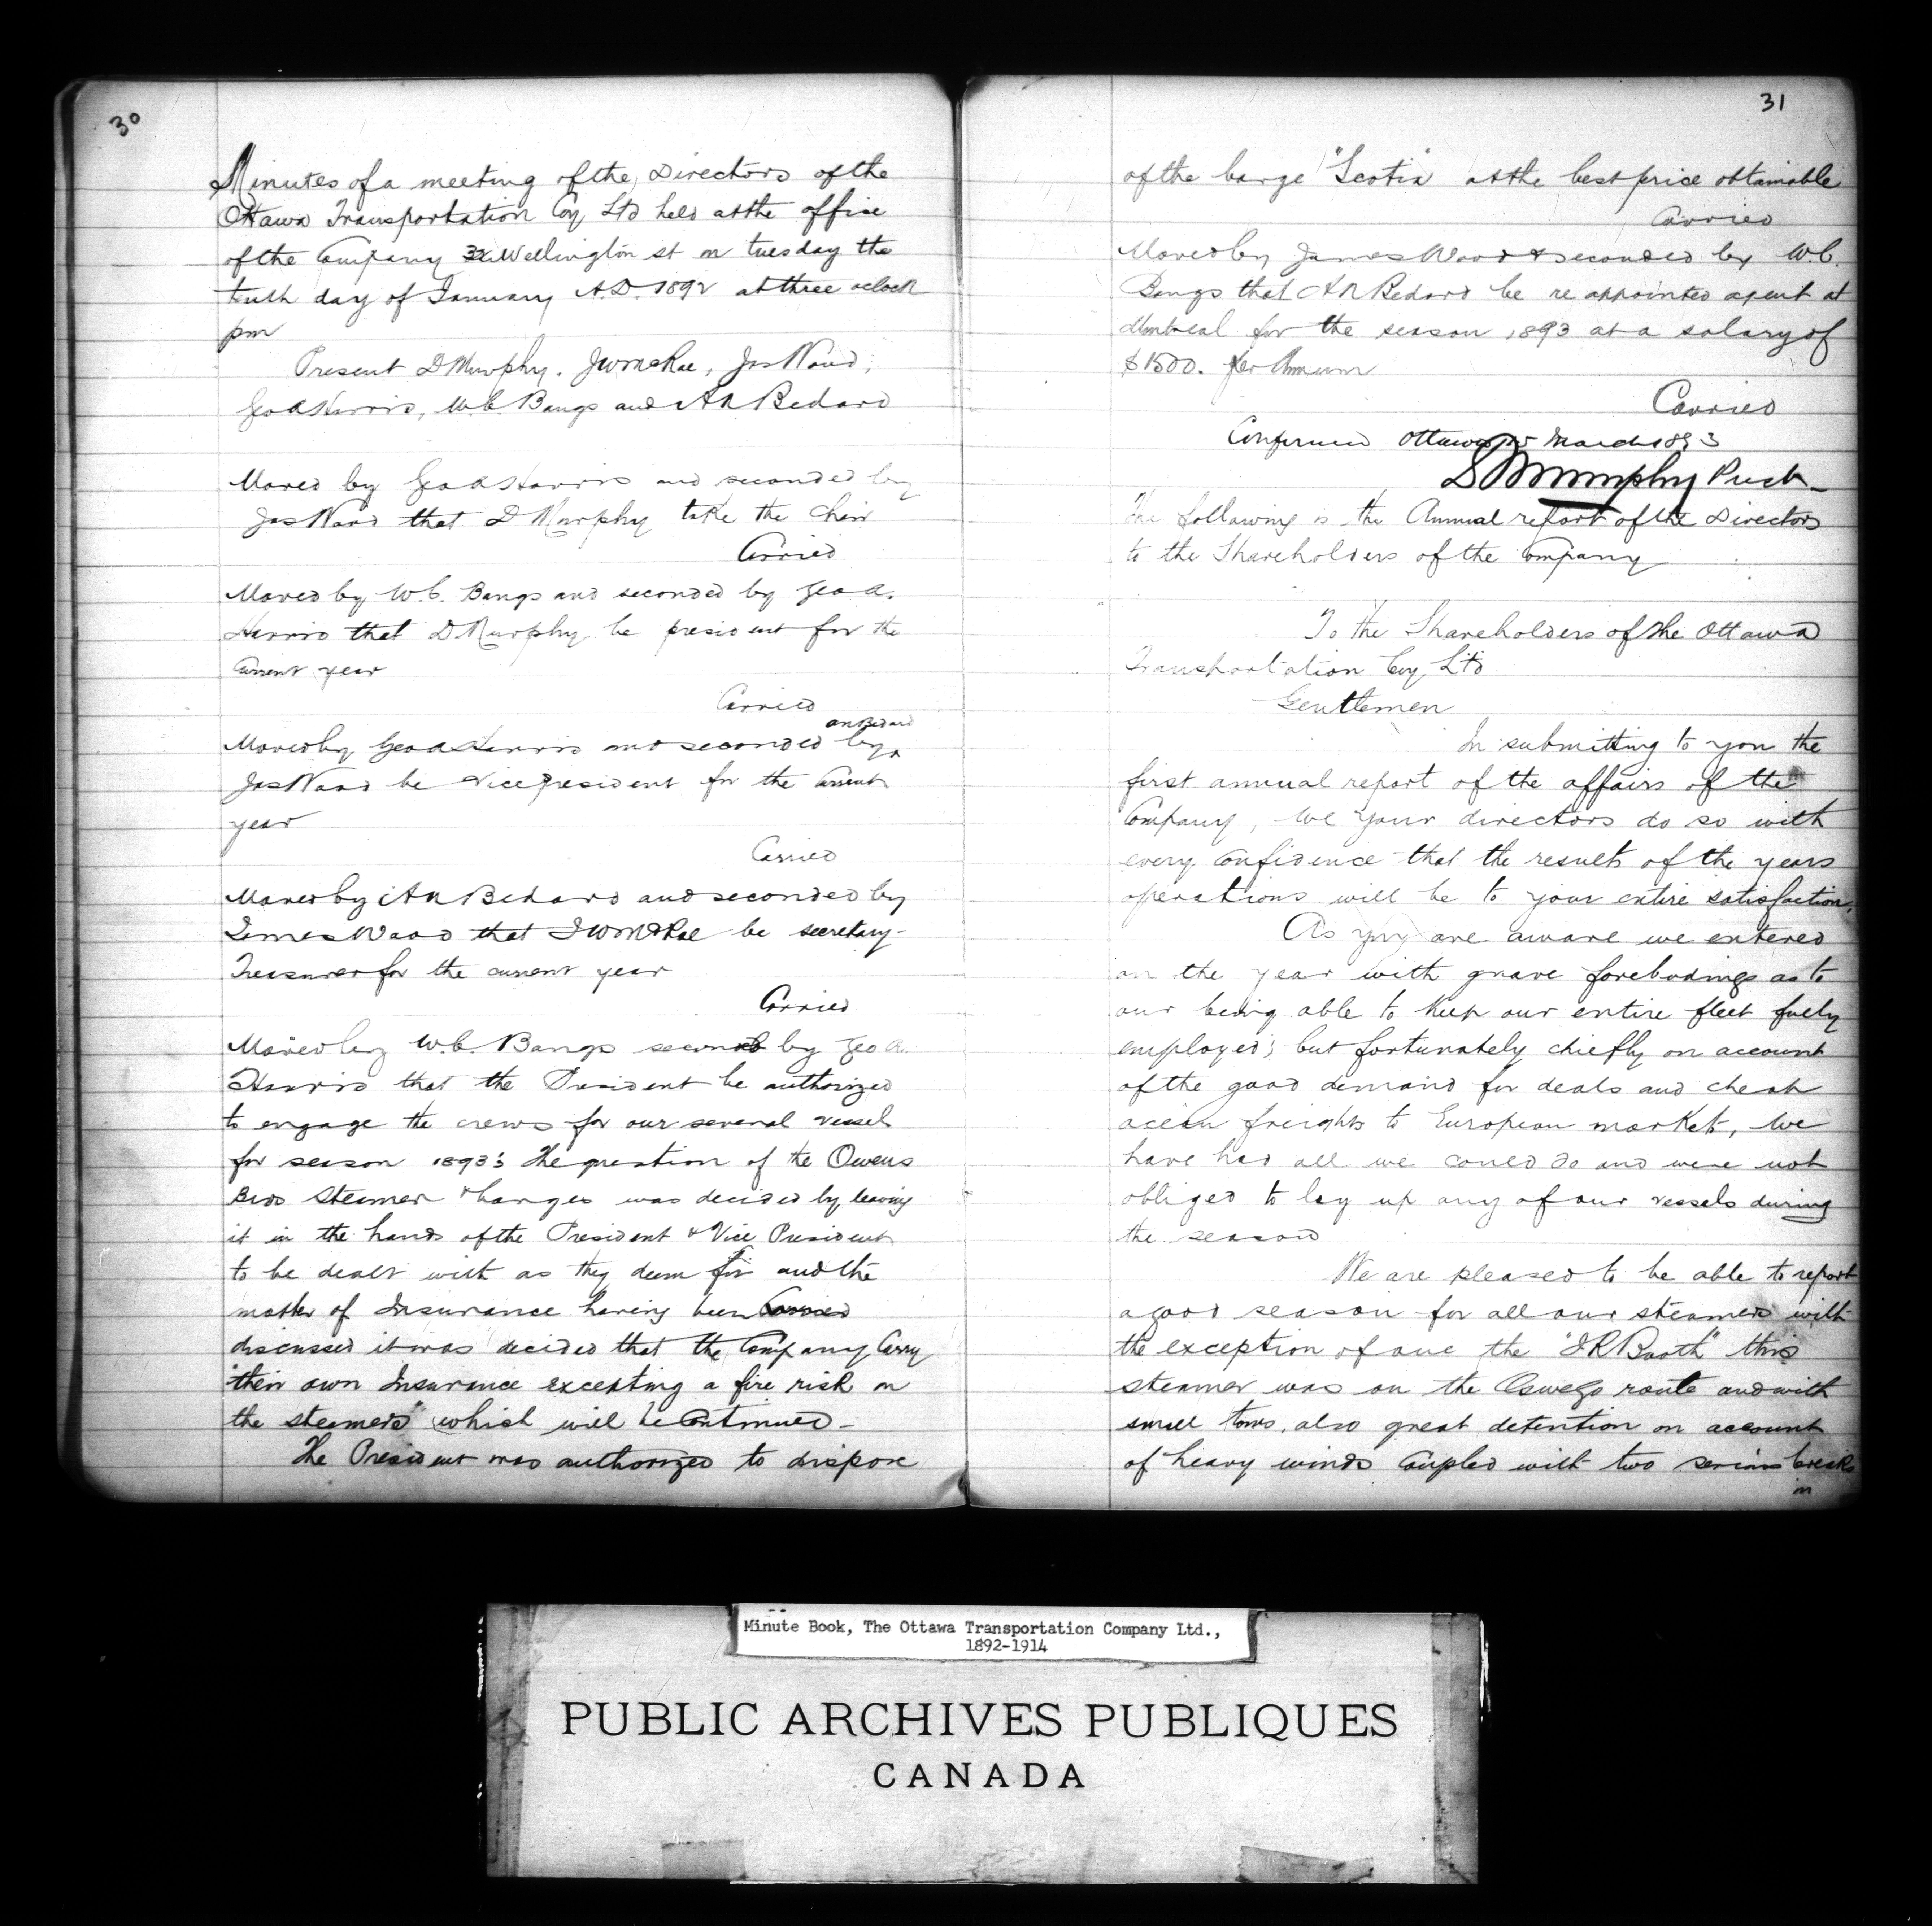 30
Minutes of a meeting of the Directors of the
Ottawa Transportation Coy Ltd held at the office
of the Company Wellington st on tuesday the
tenth day of January A.D. 1892 at three oclock
pm
Present D Murphy, J W McRae, Jas Wood,
Geo A Harris, W.C. Bangs and A N Bedard
Moved by Geo A Harris and seconded by
Jas Wood that D Murphy take the Chair
Carried
Moved by W.C. Bangs and seconded by Geo A.
Harris that D Murphy be president for the
Current year
Carried
A N Bedard
Moved by Geo A Harris and seconded by
Jas Wood be Vice president for the Current
year
Carried
Moved by A N Bedard and seconded by
James Wood that J W McRae be secretary-
Treasurer for the current year
Carried
Moved by W.C. Bangs second by Geo A.
Harris that the President be authorized
to engage the crews for our several vessels
for season 1893; The question of the Owens
Bros steamer & barges was decided by leaving
it in the hands of the President & Vice President
to be dealt with as they deem fit and the
matter of Insurance having been Carried
discussed it was decided that the Company Carry
"their own Insurance excepting a fire risk on
the steamers" which will be Continued -
The President was authorized to dispose
31
of the barge "Scotia" at the best price obtainable
Carried
Moved by James Wood & seconded by W.C.
Bangs that A N Bedard be re appointed agent at
Montreal for the season 1893 at a salary of
$1500. per Annum
Carried
Confirmed Ottawa March 1893
D Murphy Prest-
The following is the Annual report of the Directors
to the Shareholders of the Company
To the Shareholders of the Ottawa
Transportation Coy Ltd
Gentlemen
In submitting to you the
first annual report of the affairs of the
Company, we your directors do so with
every confidence that the results of the years
operations will be to your entire satisfaction.
As you are aware we entered
on the year with grave forebodings as to
our being able to keep our entire fleet fully
employed; but fortunately chiefly on account
of the good demand for deals and cheap
ocean freights to European markets, we
have had all we could do and were not
obliged to lay up any of our vessels during
the season
We are pleased to be able to report
a good season for all our steamers with
the exception of one the "J R Booth" this
steamer was on the Oswego route and with
small tows, also great detention on account
of heavy winds Coupled with two serious breaks
in
Minute Book, The Ottawa Transportation Company Ltd.,
1892-1914
PUBLIC ARCHIVES PUBLIQUES
CANADA